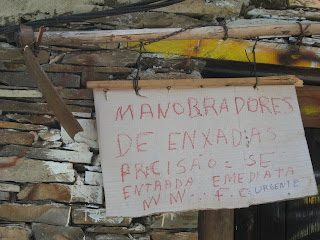 MANOBRADORES
DE ENXADAS
PRECISÃO = SE
ENTRADA EMEDIATA
M M... F. C. URGENTE